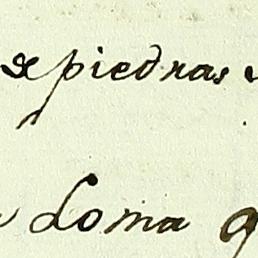 de piedras
Loma